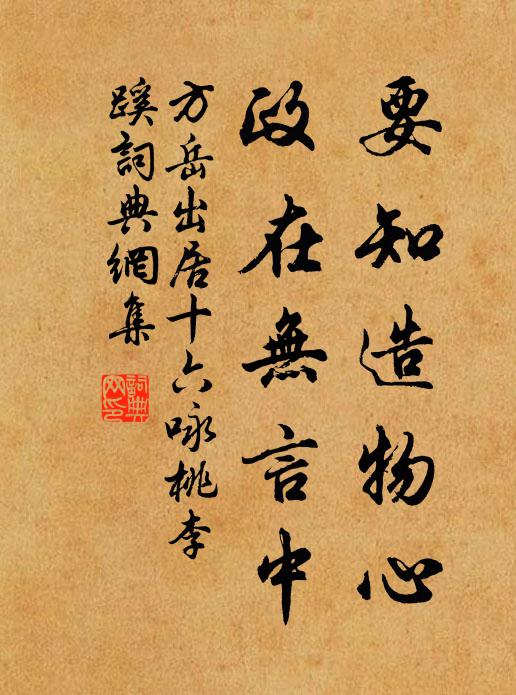 要知造物心
政在無言中
方岳出居十六咏桃李
蹊詞典網集
詞典
网印